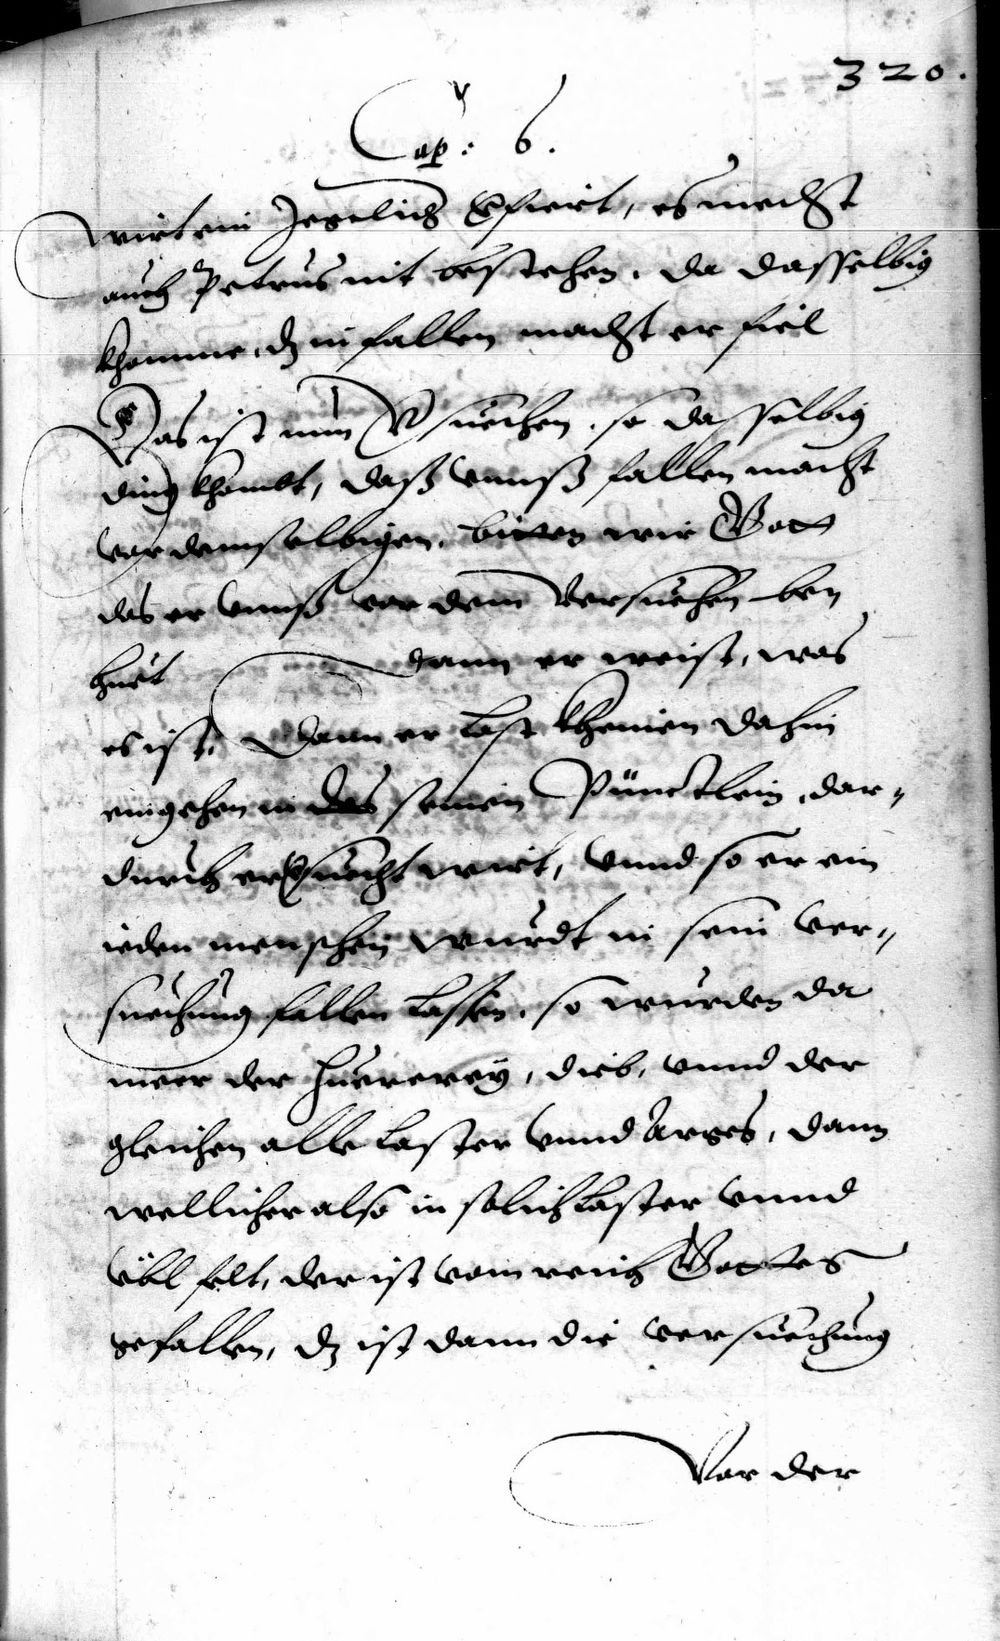 320.
Cap: 6.
wirt ein Jegelich verfiert, es mecht
auch Petrus nit bestehen, da dasselbig
khomme, dz in fallen macht er fiel
Das ist nun versuechen, so dasselbig
ding khombt, daß vnnß fallen macht
vor demselbigen, bitten wir Gott
das er vnnß vor dem Versuechen be
huet dann er weist, was
es ist, Dann er last kheinen dahin
eingehen in das seinem Pünctlein, dar-
durch er versuecht wirt, Vnnd so er ein
ieden menschen wurdt in sein ver-
suechung fallen lassen, so wurden da
meer der huererey, dieb, vnnd der
gleichen alle laster vnnd Arges, dann
wellicher also in solich laster vnnd
übl felt, der ist vom reich Gottes
gefallen, dz ist dann die versuechung
Vor der